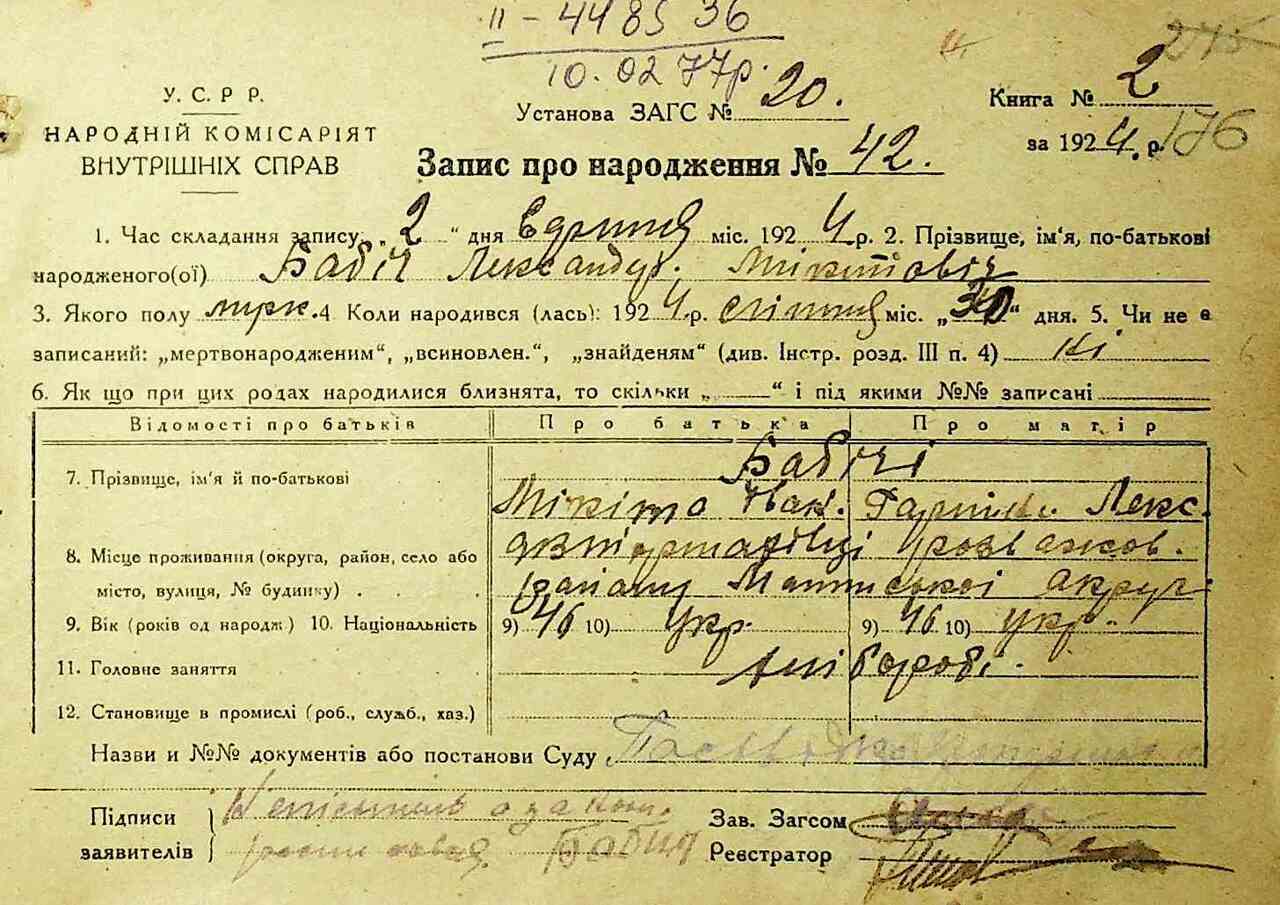 II – 448536
10.02 77р.
245
У. С. Р Р.
НАРОДНІЙ КОМІСАРІЯТ
ВНУТРІШНІХ СПРАВ
Установа ЗАГС № 20.
Книга № 2
за 1924. р. 176
Запис про народження № 42.
1. Час складання запису: „2“ дня міс. 1924 р. 2. Прізвище, ім'я, по-батькові
народженого(ої) Бабіч Лександр. Мікітовіч
3. Якого полу 4 Коли народився (лась): 1924.р. січння міс. „30“ дня. 5. Чи не є
записаний: „мертвонародженим“, „всиновлен.“, „знайденям“ (див. Інстр. розд. III п. 4) ні
6. Як що при цих родах народилися близнята, то скільки „ “ і під якими №№ записані
Відомості про батьків Про батька Про матір
Бабічі
7. Прізвище, ім'я й по-батькові
Мікіта Іван. Лекс.
8. Місце проживання (округа, район, село або
розважов.
місто, вулиця, № будинку) . .
району акруги
9. Вік (років од народж.) 10. Національність 9) 46 10) укр. 9) 46 10) укр.
11. Головне заняття хліборобі.
12. Становище в промислі (роб., служб., хаз.)
Назви и №№ документів або постанови Суду
Підписи
заявителів
Бабич
Зав. Загсом
Реєстратор